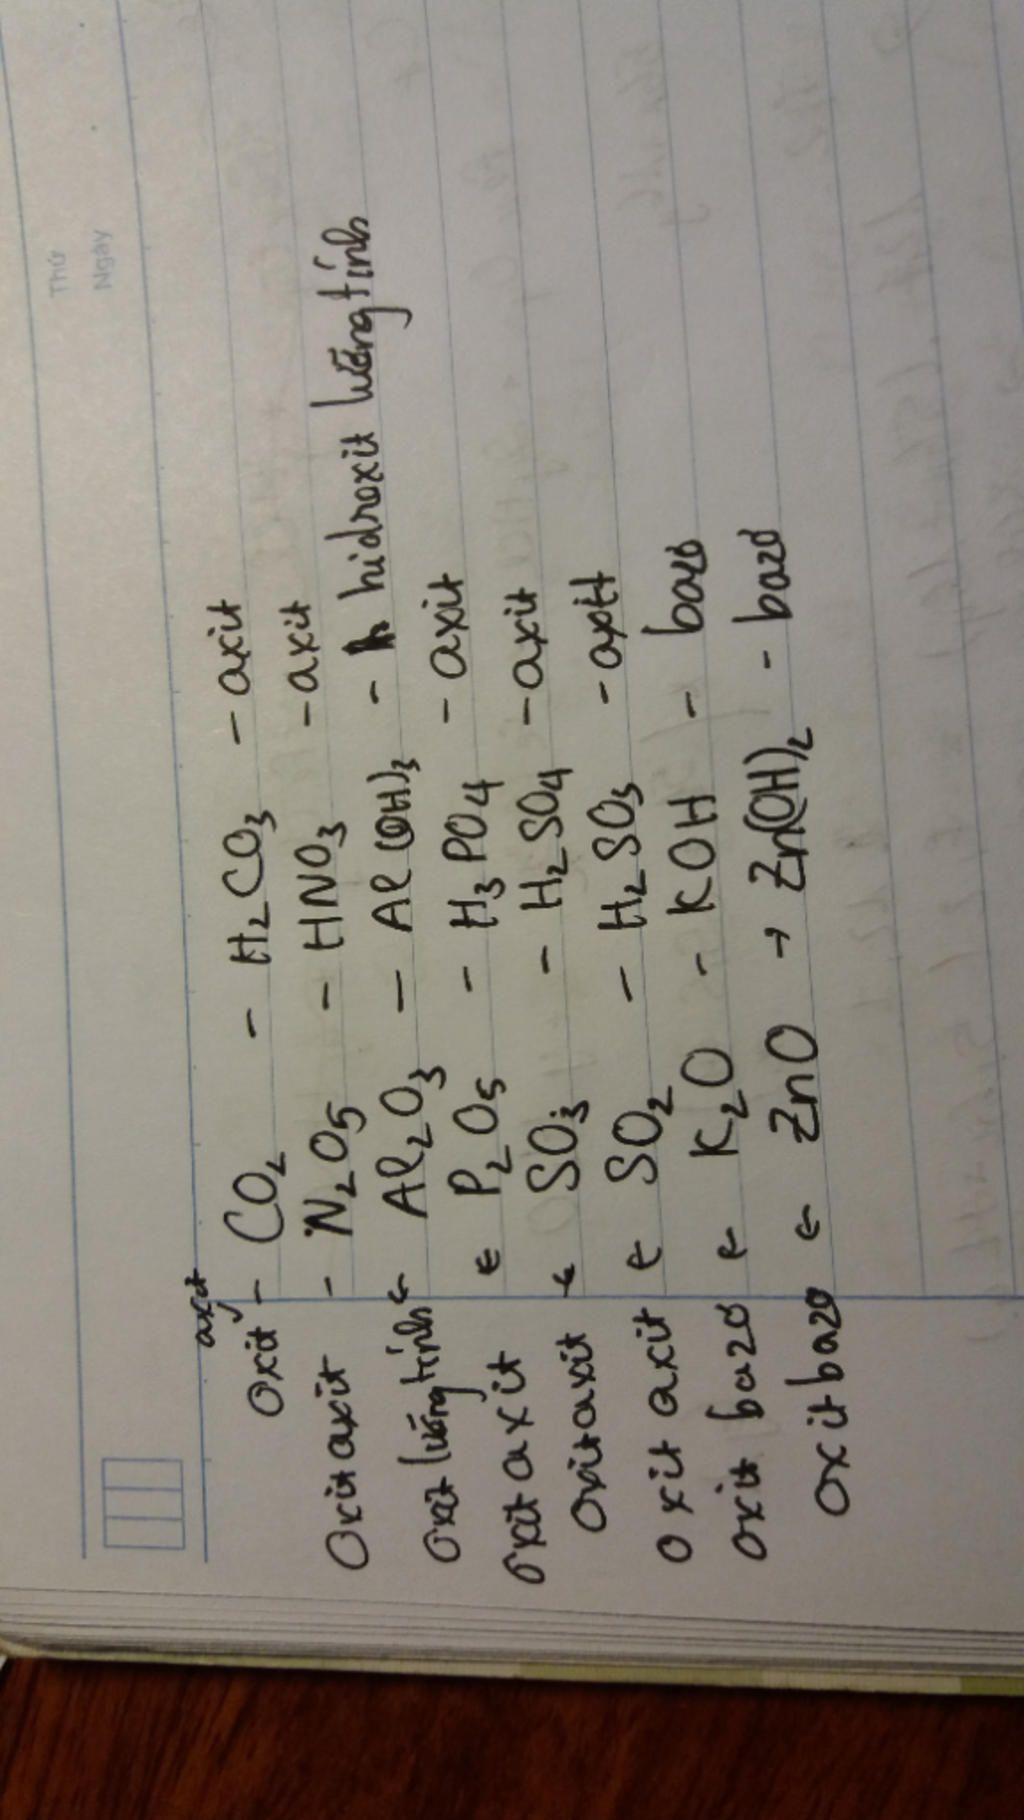 Thứ
Ngày
axit
Oxit - CO2 - H2CO3 - axit
Oxit axit - N2O5 - HNO3 - axit
Oxit lưỡng tính ← Al2O3 - Al(OH)3 - hidroxit lưỡng tính
Oxit axit ← P2O5 - H3PO4 - axit
Oxit axit ← SO3 - H2SO4 - axit
Oxit axit ← SO2 - H2SO3 - axit
Oxit bazơ ← K2O - KOH - bazơ
Oxit bazơ ← ZnO → Zn(OH)2 - bazơ